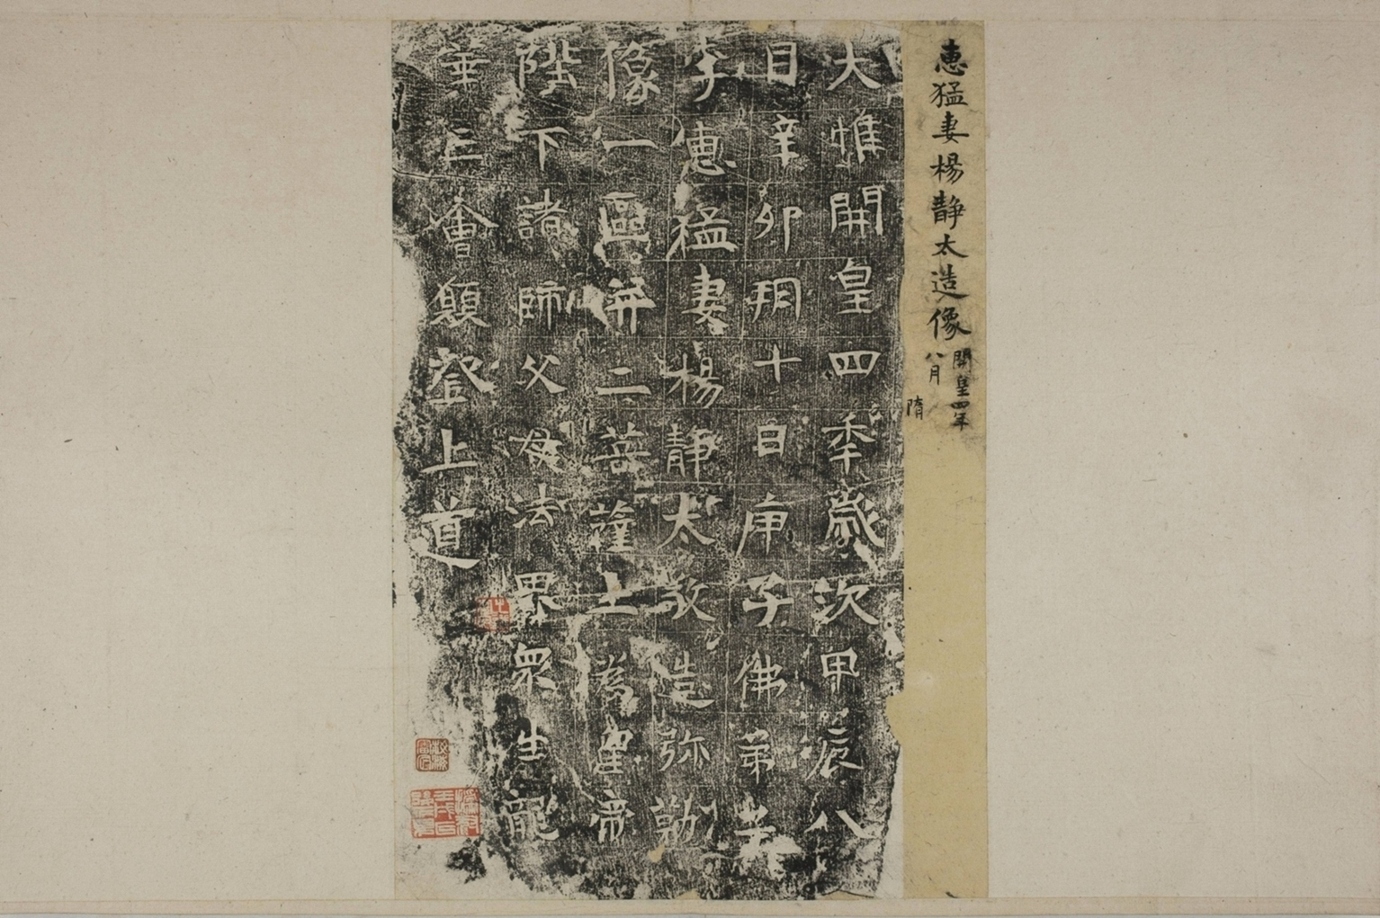 惠猛妻楊静太造像
開皇四年
八月
隋
大惟開皇四秊歲次甲辰八
日辛卯朔十日庚子佛弟
李惠猛妻楊靜太敬造弥勒
像一區并二菩薩上為皇帝
陛下諸師父母法界眾生龍
華三會願登上道